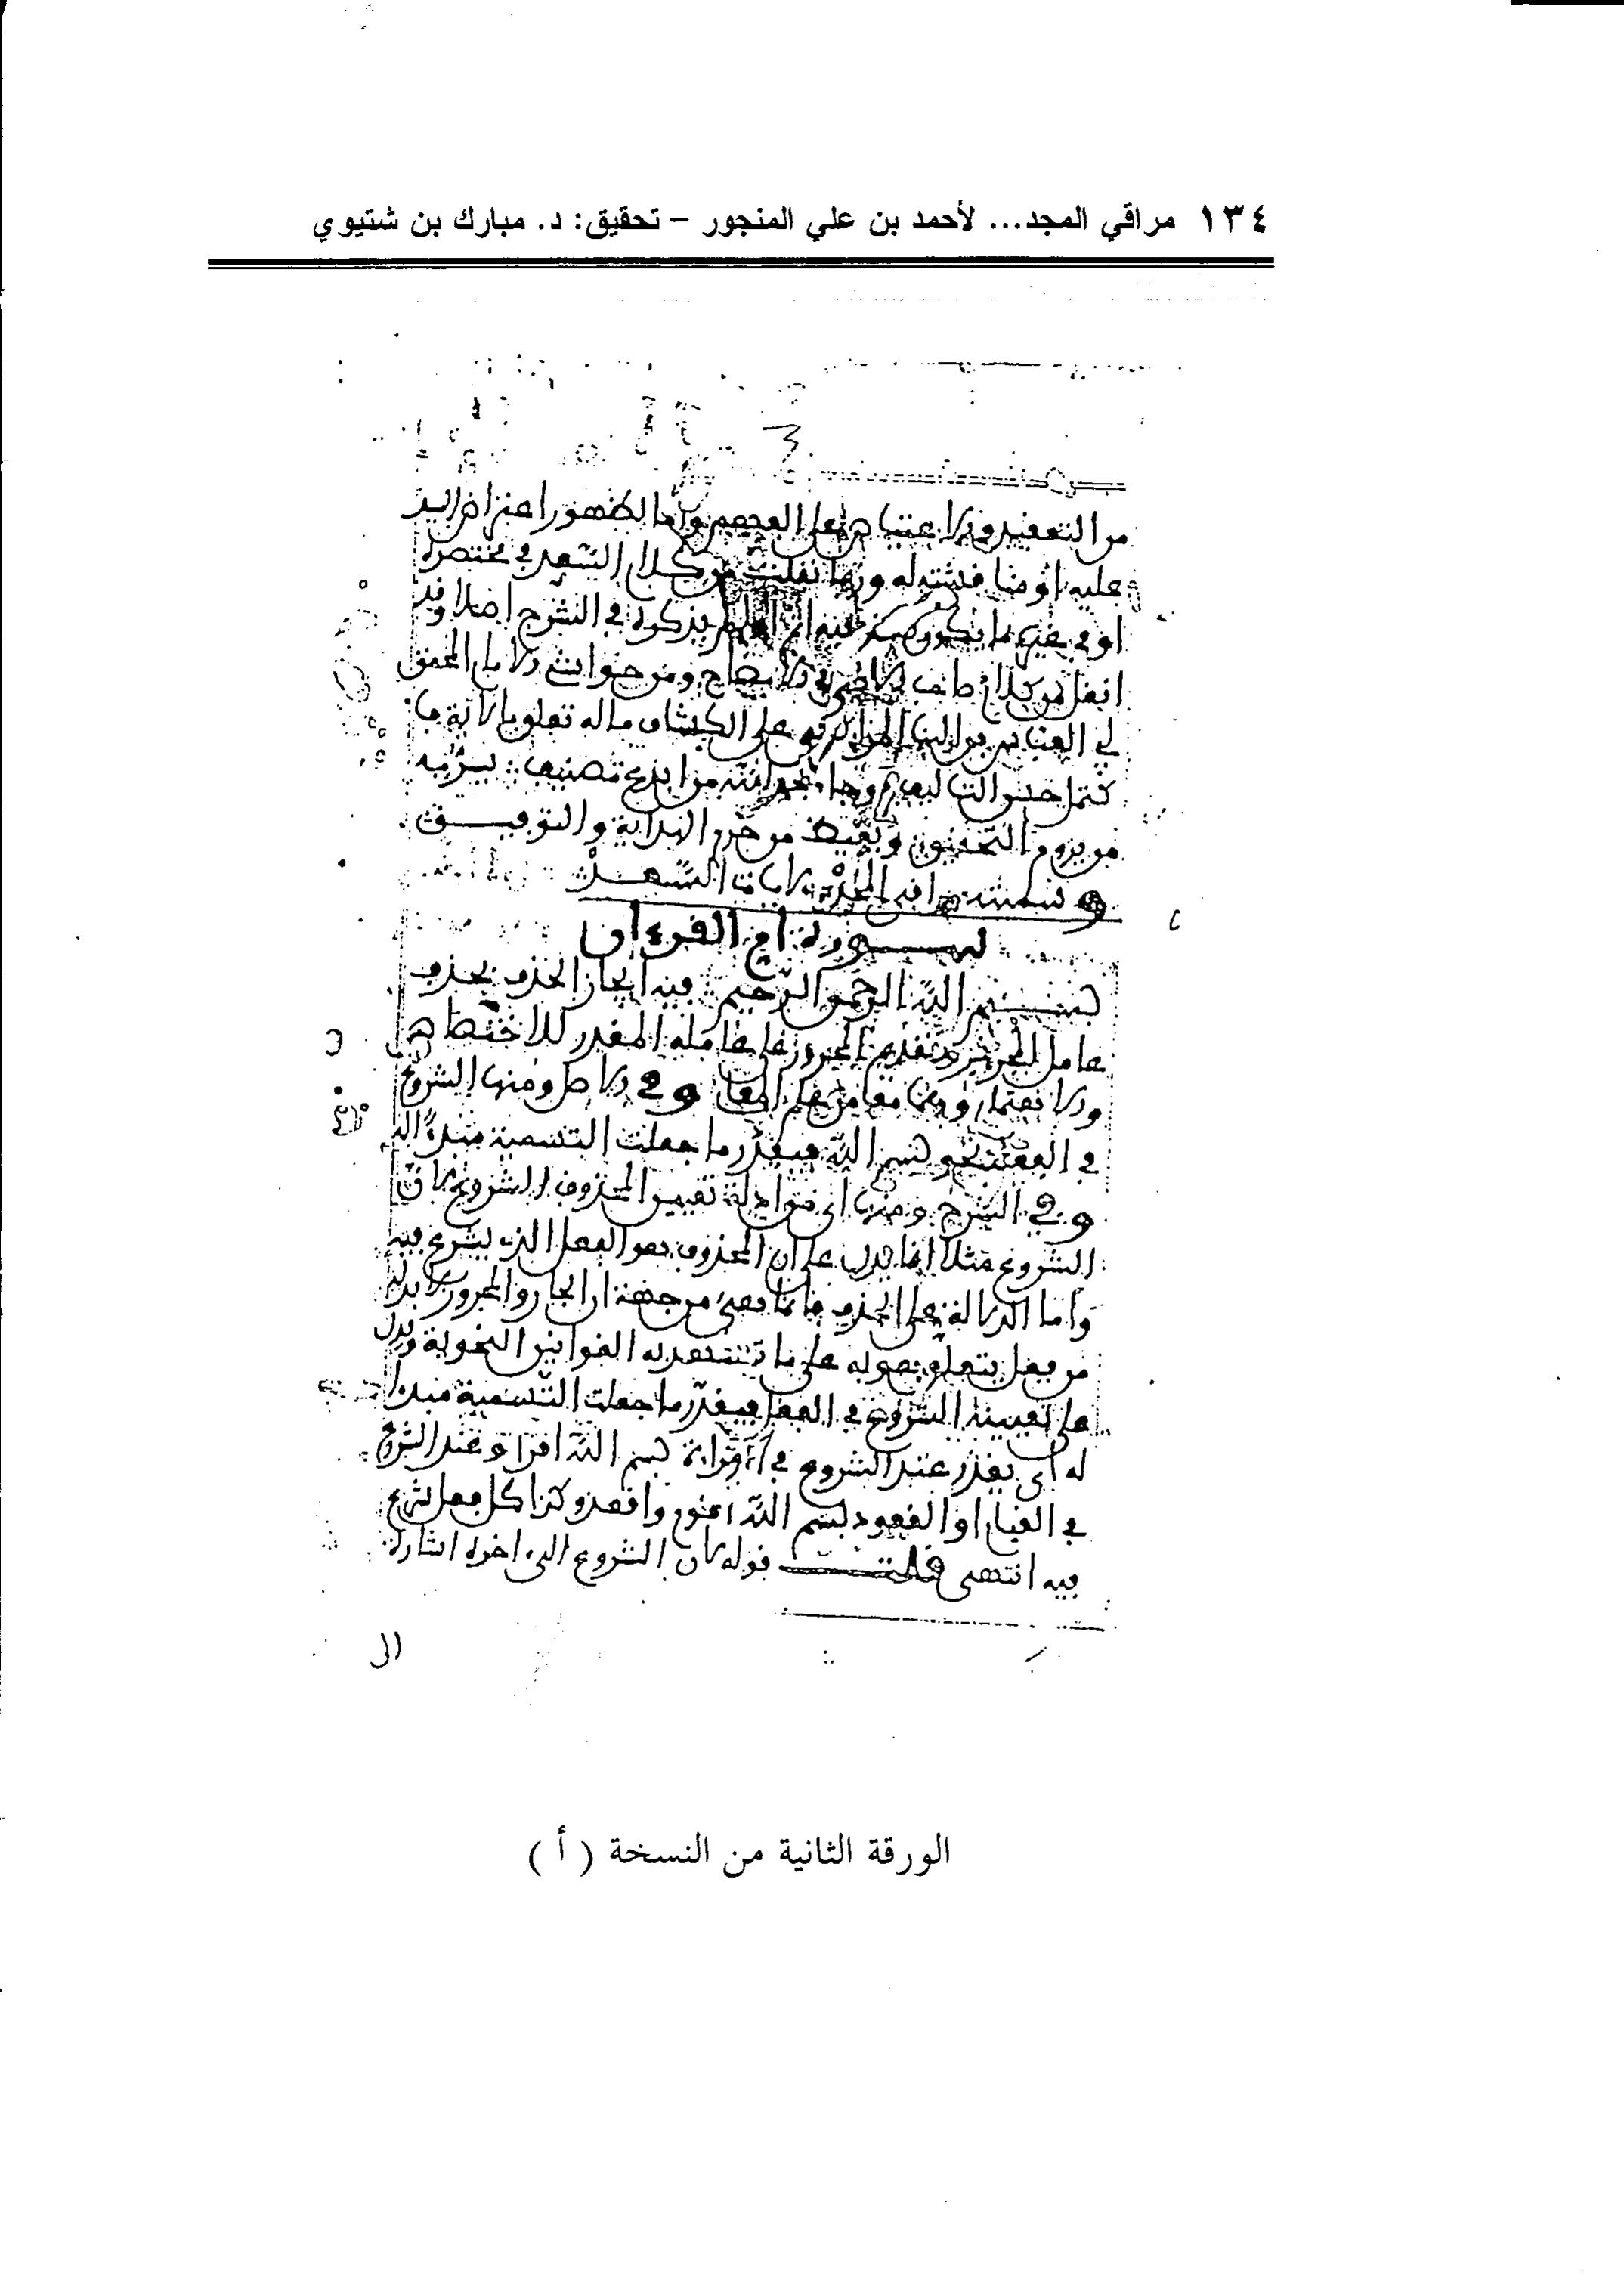 ١٣٤ مراقي المجد... لأحمد بن علي المنجور – تحقيق: د. مبارك بن شتيوي
من التعقيد
عليه او منا فشبته له وربما نقلت من كلام السعد في مختصره
او في غيره ما يكون يذكره في الشرح اصلا وقد
انقل من كلام صاحب في الايضاح ومن حواشي الامام المحقق
ابي العباس بن البنا على الكشاف ماله تعلق بالاية
فتم حسن التاليف وجاء بحمد الله من ابدع تصنيف يسر به
من يروم التحقيق ويغيظ من حرم الهداية والتوفيق
وسميته مراقي المجد لايات السعد
سورة ام القرءان
بسم الله الرحمن الرحيم فيه ايجاز الحذف بحذف
عامل المجرور وتقديم المجرور على عامله المقدر للاختصاص
والاهتمام وهما معا من علم المعاني وفي الاصل ومنها الشروع
في الفعل نحو بسم الله فيقدر ما جعلت التسمية مبدءا له
وفي الشرح ومنها اي من ادلة تعيين المحذوف الشروع لان
الشروع مثلا انما يدل على ان المحذوف هو الفعل الذي يشرع فيه
واما الدلالة على الحذف فانما هي من جهة ان الجار والمجرور لا بد له
من فعل يتعلق به على ما تشهد له القوانين النحوية ويدل
على تعيينه الشروع في الفعل فيقدر ما جعلت التسمية مبدءا
له اي يقدر عند الشروع في القراءة بسم الله اقرا وعند الشروع
في القيام او القعود بسم الله اقوم واقعد وكذا كل فعل شرع
فيه انتهى قلت قوله لان الشروع الى اخره اشارة
الى
الورقة الثانية من النسخة ( أ )